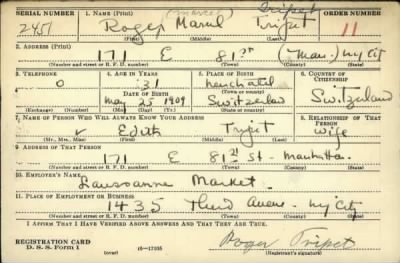 SERIAL NUMBER 1. NAME (Print) ORDER NUMBER
Tripet
2451 Roger Marcel Tripet 11
(First) (Middle) (Last)
2. ADDRESS (Print)
171 E 81st (Man.) NY City
(Number and street or R. F. D. number) (Town) (County) (State)
3. TELEPHONE 4. AGE IN YEARS 5. PLACE OF BIRTH 6. COUNTRY OF CITIZENSHIP
0 31 Neuchatel
DATE OF BIRTH
May 25 1909 Switzerlan Switzerland
(Exchange) (Number) (Mo.) (Day) (Yr.) (State or country)
7. NAME OF PERSON WHO WILL ALWAYS KNOW YOUR ADDRESS 8. RELATIONSHIP OF THAT PERSON
Edith Tripet Wife
(Mr., Mrs., Miss) (First) (Middle) (Last)
9. ADDRESS OF THAT PERSON
171 E 81st St - Manhattan
(Number and street or R. F. D. number) (Town) (County) (State)
10. EMPLOYER'S NAME
Laussanne Market
11. PLACE OF EMPLOYMENT OR BUSINESS
1435 Third Avenue - NY City
(Number and street or R. F. D. number) (Town) (County) (State)
I AFFIRM THAT I HAVE VERIFIED ABOVE ANSWERS AND THAT THEY ARE TRUE.
REGISTRATION CARD
D. S. S. Form 1 (over) 16—17105 Roger Tripet
(Registrant's signature)